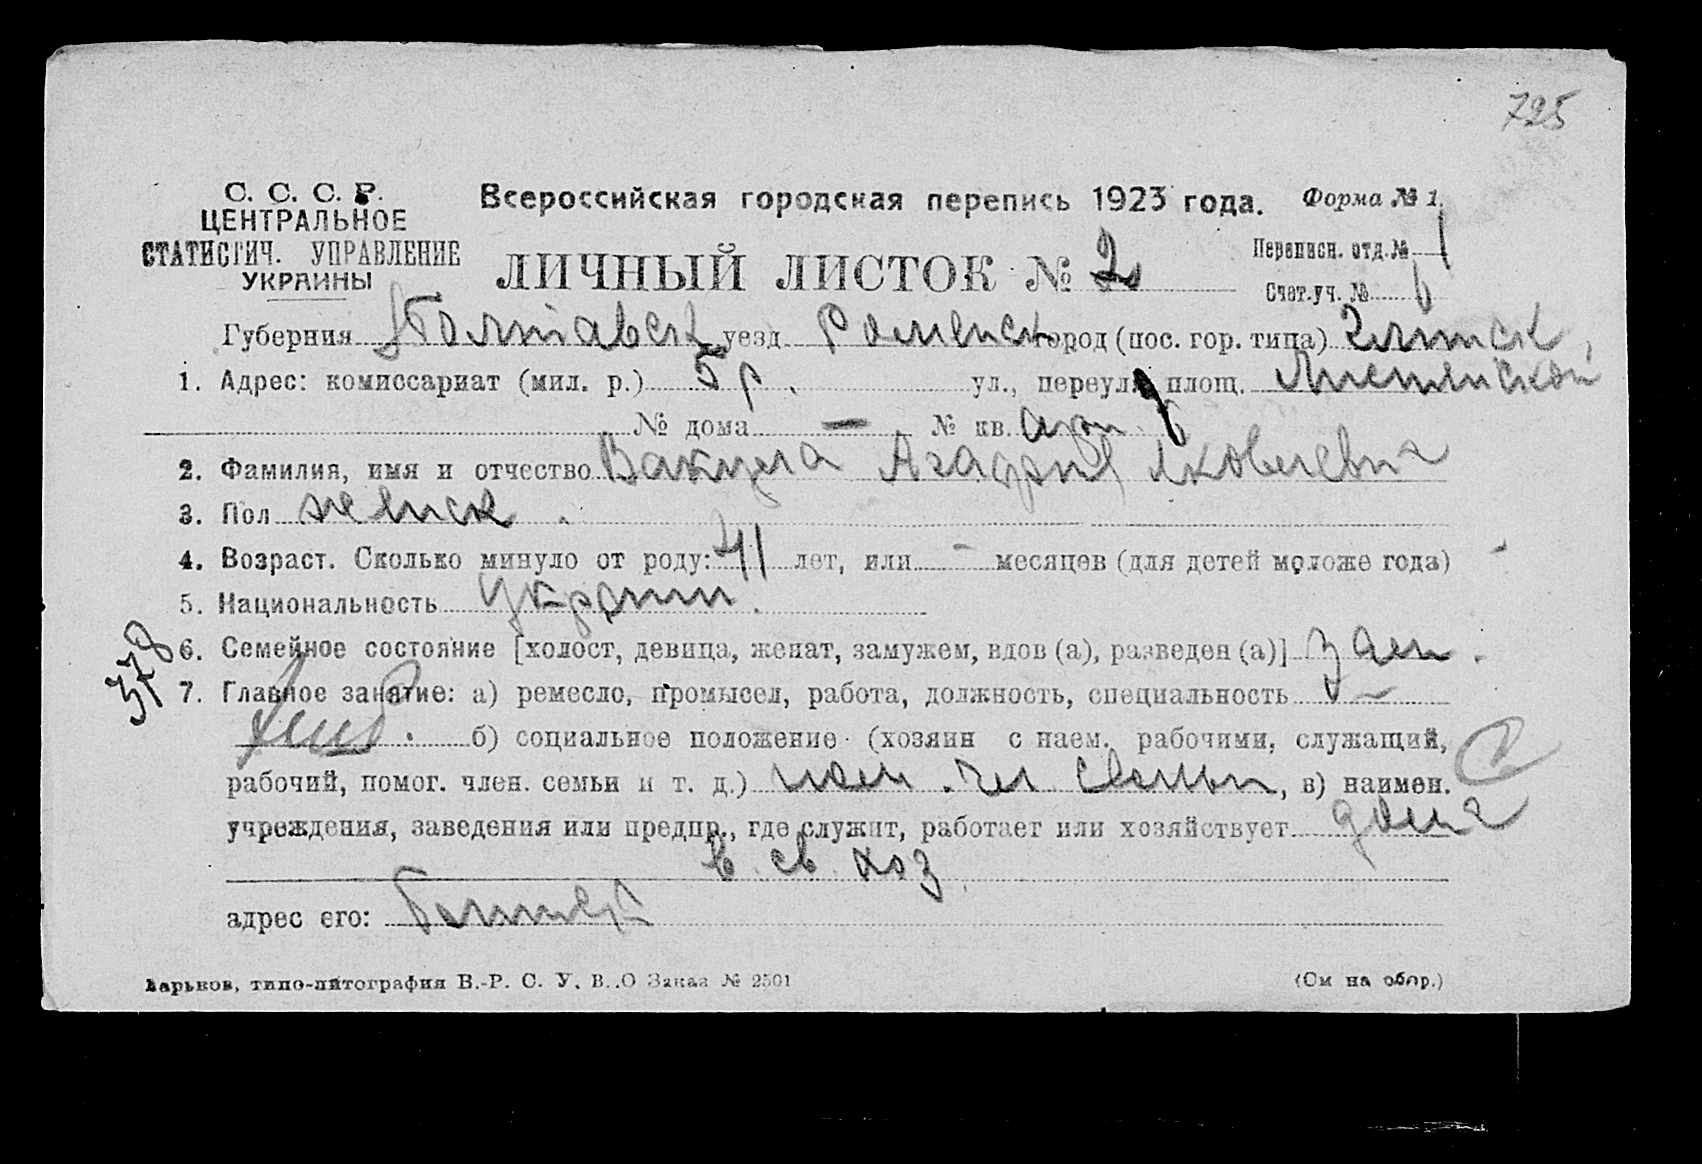 725
С. С. С. Р.
ЦЕНТРАЛЬНОЕ
СТАТИСТИЧ. УПРАВЛЕНИЕ
УКРАИНЫ
Всероссийская городская перепись 1923 года. Форма № 1.
ЛИЧНЫЙ ЛИСТОК № 2
Переписн. отд. № 1
Счет. уч. № 6
Губерния Полтавск уезд Роменск город (пос. гор. типа) Глинск,
1. Адрес: комиссариат (мил. р.) 5 р. ул., переул., площ.
№ дома — № кв.
2. Фамилия, имя и отчество Вакула Яковлевна
3. Пол женск.
4. Возраст. Сколько минуло от роду: 41 лет, или - месяцев (для детей моложе года) -
5. Национальность Украин.
378
6. Семейное состояние [холост, девица, женат, замужем, вдов (а), разведен (а)] Зам.
7. Главное занятие: а) ремесло, промысел, работа, должность, специальность
б) социальное положение (хозяин с наем. рабочими, служащий,
рабочий, помог. член. семьи и т. д.) пом. чл. семьи, в) наимен.
учреждения, заведения или предпр., где служит, работает или хозяйствует дома
в св. хоз.
адрес его:
Харьков, типо-литография В.-Р. С. У. В. О Заказ № 2501 (См на обор.)